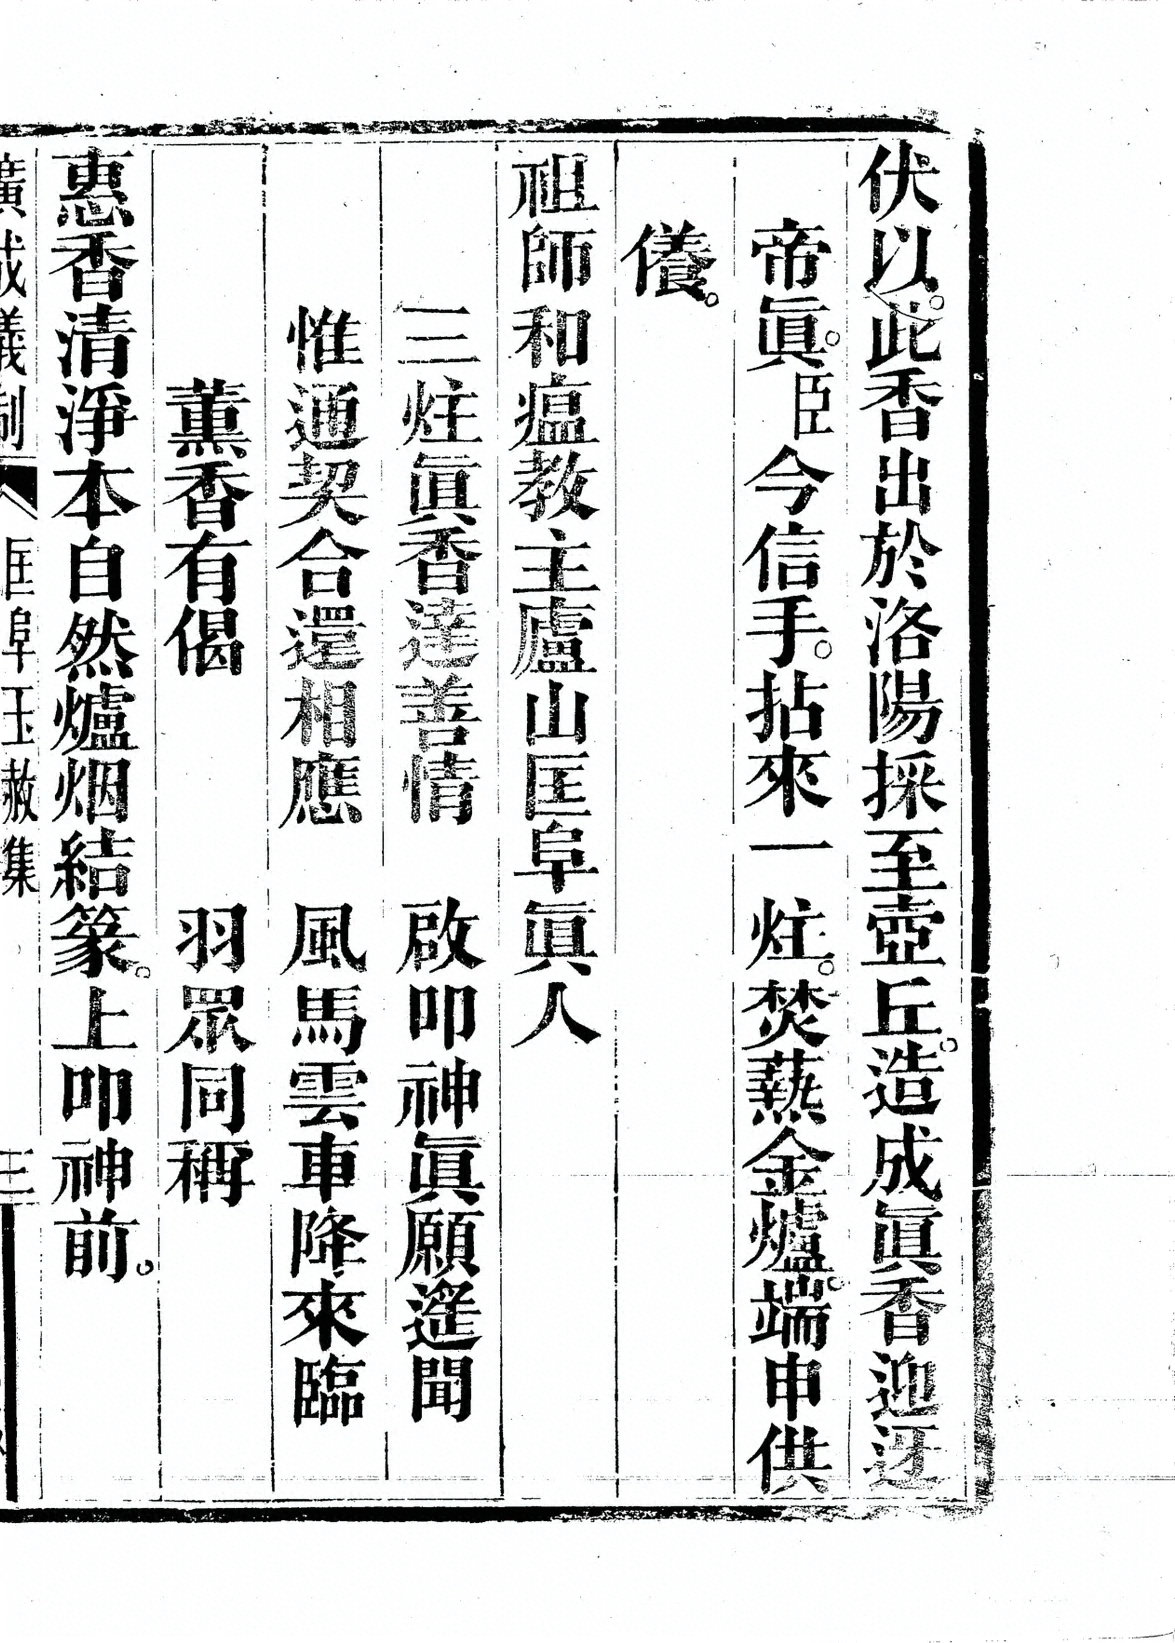 伏以。此香出於洛陽採至壺丘。造成眞香迎迓
帝眞。臣今信手。拈來一炷。焚爇金爐。端申供
養。
祖師和瘟教主廬山匡阜眞人
三炷眞香達善情　啟叩神眞願遙聞
惟通契合還相應　風馬雲車降來臨
薰香有偈　羽眾同稱
惠香清淨本自然爐烟結篆。上叩神前。
廣成儀制　匡阜玉赦集　三